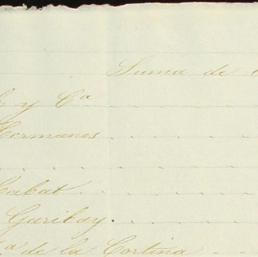 Suma de
y Ca
Hermanos
Cabat
Garibay
a de la Cortina